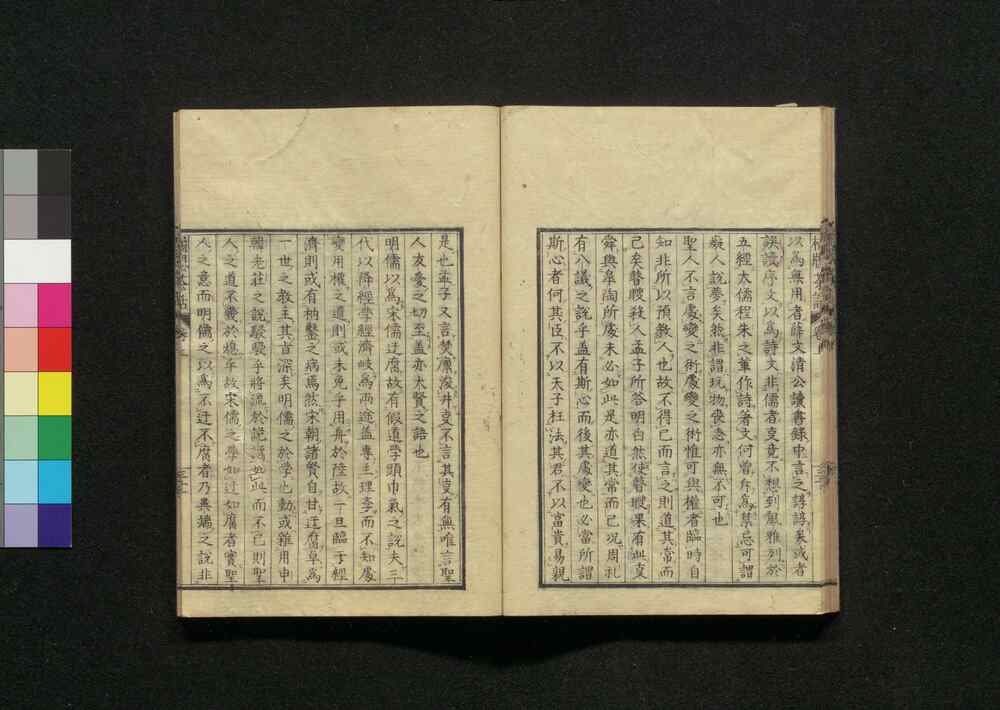 以爲無用者薛文清公讀書錄中言之諄諄矣或者
誤讀序文以爲詩文非儒者事竟不想到風雅列於
五經大儒程朱之輩作詩著文何曾斥爲禁忌可謂
癡人說夢矣然非謂玩物喪志亦無不可也
聖人不言處變之術處變之術惟可與權者臨時自
知非所以預教人也故不得已而言之則道其常而
已矣瞽瞍殺人孟子所答明白然使瞽瞍果有此事
舜與皐陶所處未必如此是亦道其常而已況周礼
有八議之說乎盖有斯心而後其處變也必當所謂
斯心者何其臣不以天子枉法其君不以富貴易親
是也孟子又言焚廩浚井事不言其事有無唯言聖
人友愛之切至盖亦大賢之語也
明儒以爲宋儒迂腐故有假道學頭巾氣之說夫三
代以降經學經濟岐爲兩途盖專主理者而不知處
變用權之道則或未免乎用舟於陸故一旦臨于經
濟則或有枘鑿之病焉然宋朝諸賢自甘迂腐卓爲
一世之教主其旨深矣明儒之於學也動或雜用申
韓老莊之說駸駸乎將流於詭譎而不已則聖
人之道不幾於熄乎故宋儒之學如迂如腐者實聖
人之意而明儒之以爲不迂不腐者乃異端之說非